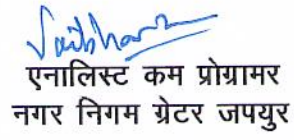 एनालिस्ट कम प्रोग्रामर
नगर निगम ग्रेटर जपयुर